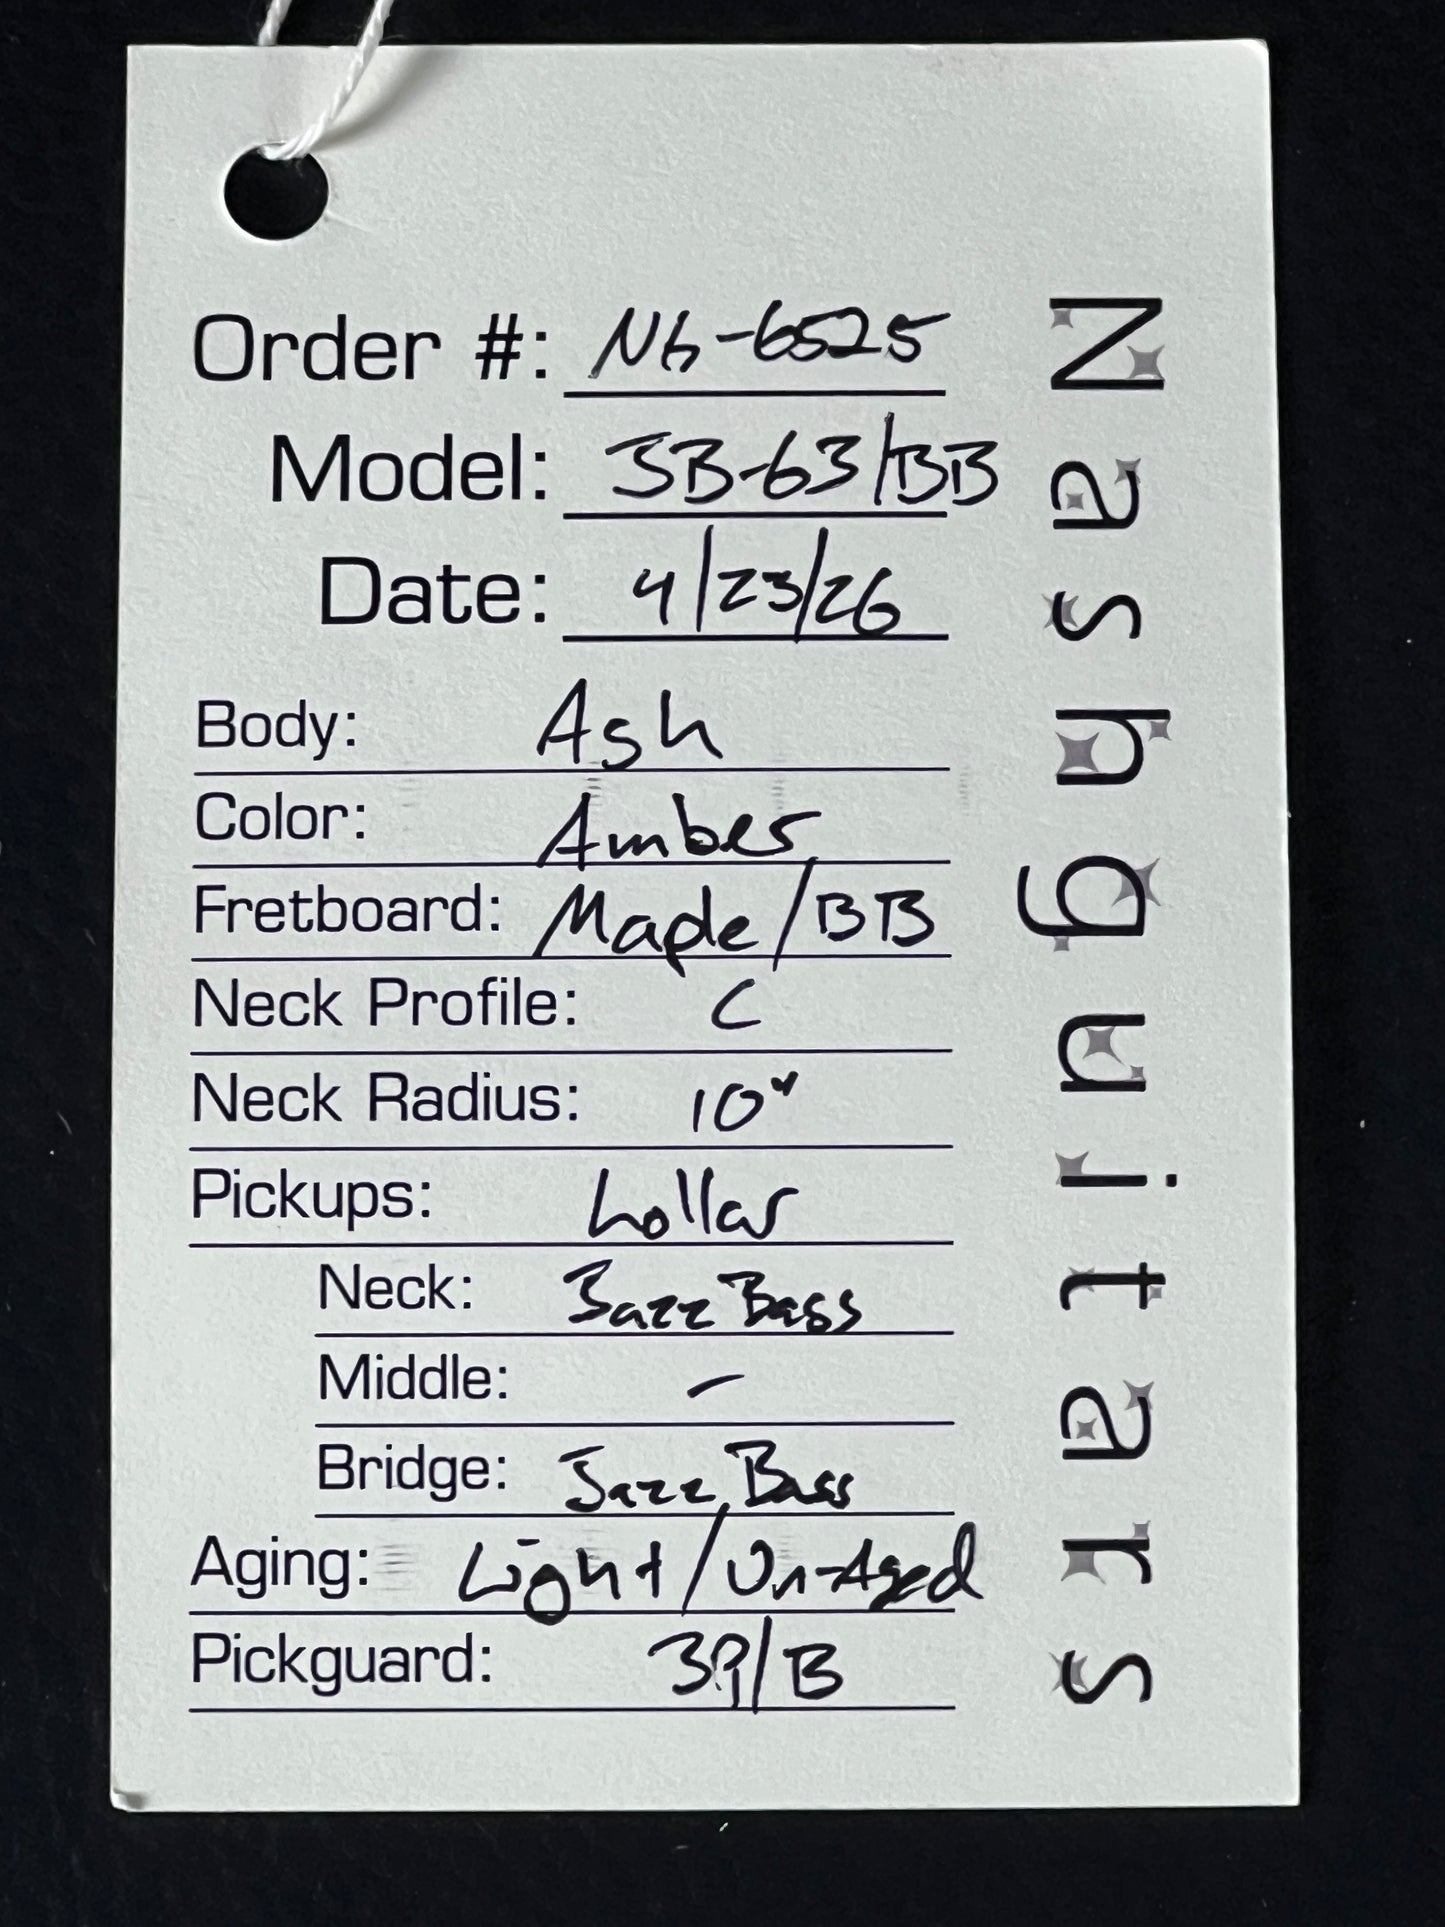 Order #: NG-6525
Model: JB-63/BB
Date: 4/23/26
Body: Ash
Color: Amber
Fretboard: Maple/BB
Neck Profile: C
Neck Radius: 10"
Pickups: Lollar
Neck: Jazz Bass
Middle: -
Bridge: Jazz Bass
Aging: Light/Un-Aged
Pickguard: 3P/B
Nashguitars